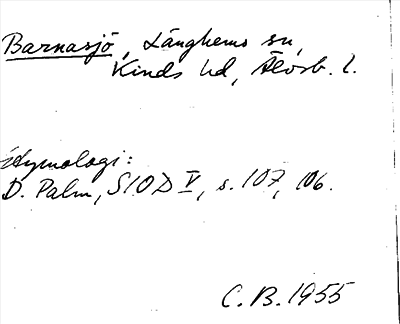 Barnasjö, Länghems sn,
Kinds hd, Älvsb. l.
Etymologi:
D. Palm, SIOD V, s. 107, 106.
C. B. 1955